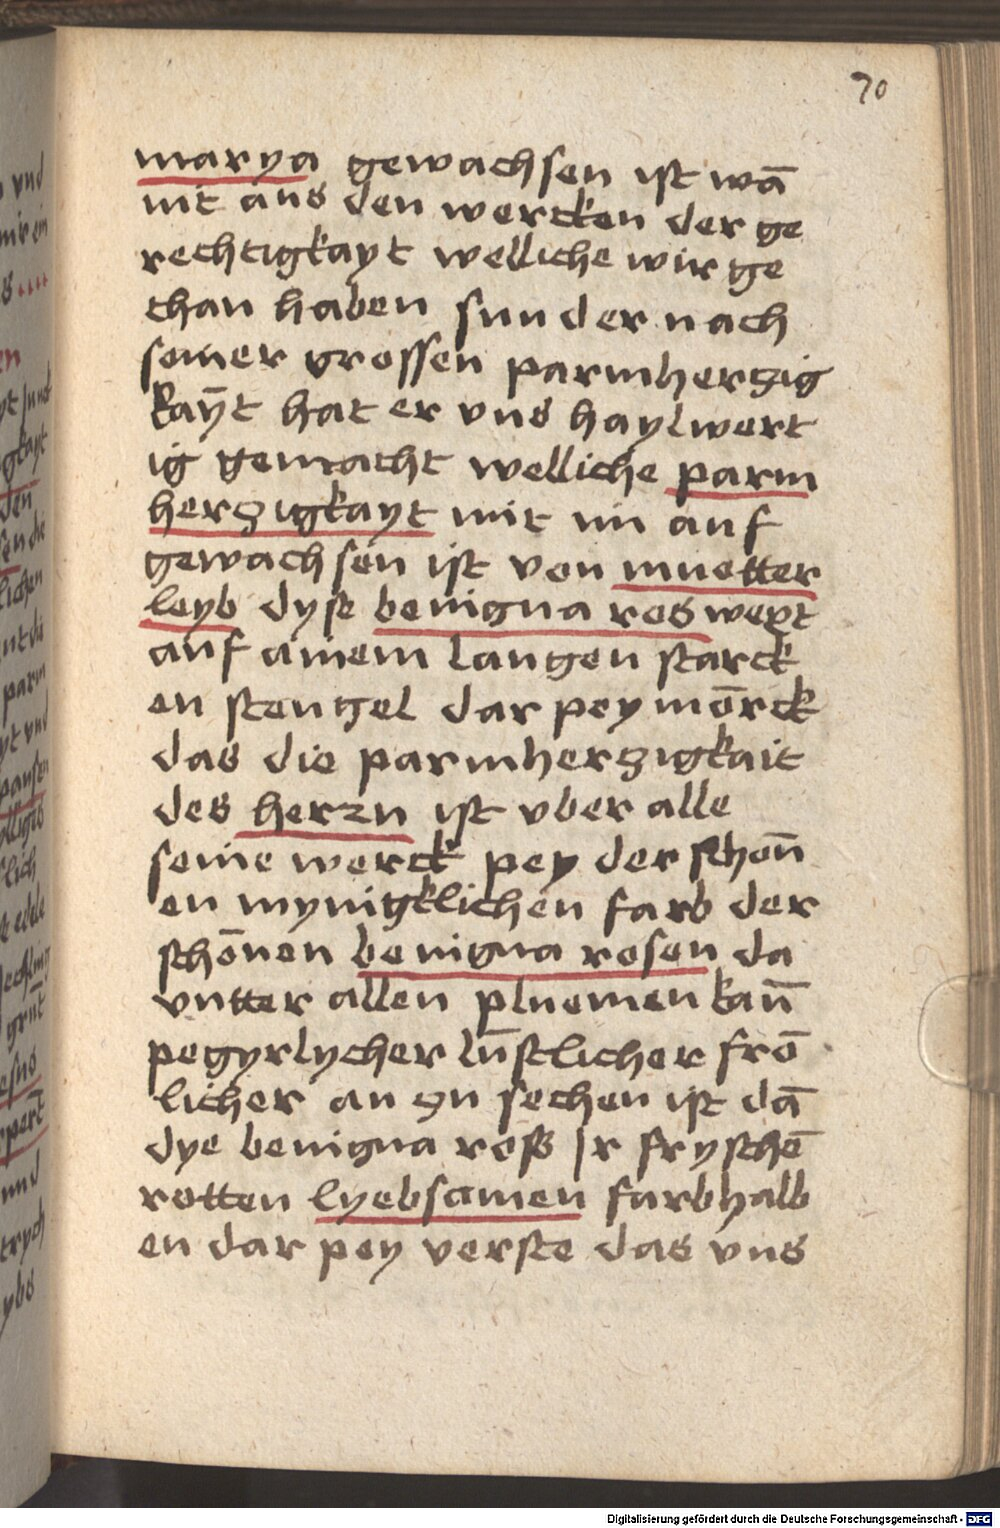 70
marya gewachsen ist wā
nit aus den wercken der ge
rechtigkayt welliche wir ge
than haben sunder nach
seiner grossen parmherczig
kaȳt hat er vns haylwert
ig gemacht welliche parm
herczigkayt mit im auf
gewachsen ist von muetter
leyb dyse benigna ros wext
auf ainem langen starck
en stengel dar pey mōrck
das die parmherczigkait
des herzn ist vber alle
seine werck pey der schon̄
en mynigklichen farb der
schōnen benigna rosen da
vntter allen pluemen kan̄
pegyrlycher lūstlicher frō
licher an zu sechen ist dā
dye benigna roß Ir fryschē
rotten lyebsamen farbhalb
en dar pey verste das vns
Digitalisierung gefördert durch die Deutsche Forschungsgemeinschaft - DFG